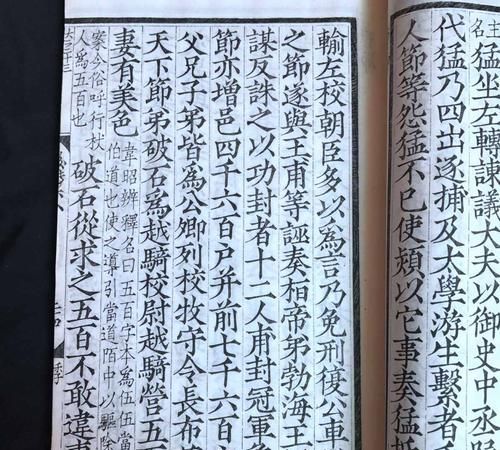 主名
猛坐左轉諫議大夫以御史中丞
代猛乃四出逐捕及太學游生繫者
人節等怨猛不已使熲以它事奏猛抵
輸左校朝臣多以為言乃免刑復公車
之節遂與王甫等誣奏桓帝弟勃海王
謀反誅之以功封者十二人甫封冠軍
節亦增邑四千六百戶并前七千六百
父兄子弟皆為公卿列校牧守令長布
天下節弟破石為越騎校尉越騎營五
妻有美色
韋昭辨釋名曰五百字本為伍伍當
伯道也使之導引當道陌中以驅除
案今俗呼行杖
人為五百也
破石從求之五百不敢違